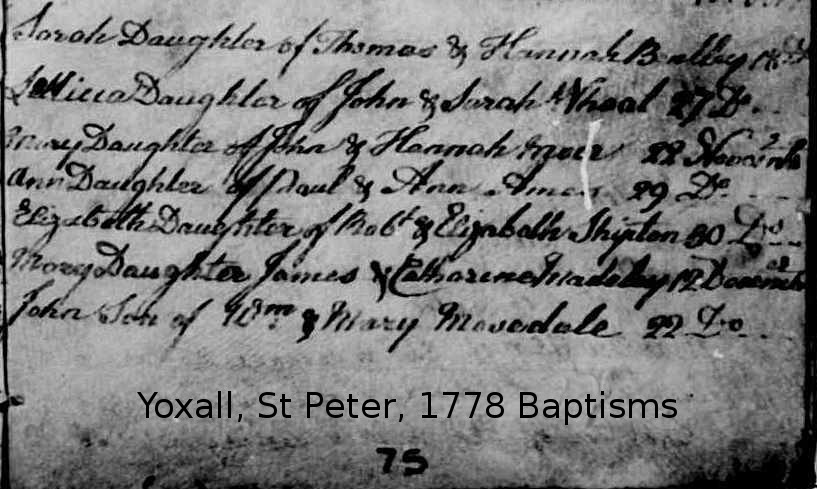 Sarah Daughter of Thomas & Hannah 18 Do
Letticia Daughter of John & Sarah 27 Do
Mary Daughter of John & Hannah 22 Novembr
Ann Daughter of Paul & Ann Amos 29 Do
Elizabeth Daughter of Robt & Elizabeth Shipton 30 Do
Mary Daughter James & Catharine 12 Decembr
John Son of Wm & Mary 22 Do
Yoxall, St Peter, 1778 Baptisms
75